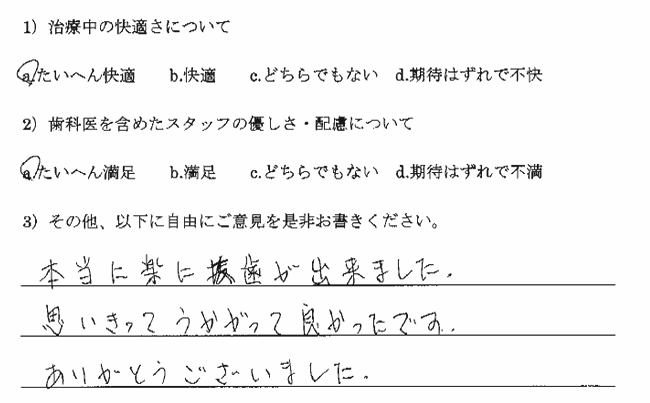 1）治療中の快適さについて
a.たいへん快適　b.快適　c.どちらでもない　d.期待はずれで不快
2）歯科医を含めたスタッフの優しさ・配慮について
a.たいへん満足　b.満足　c.どちらでもない　d.期待はずれで不満
3）その他、以下に自由にご意見を是非お書きください。
本当に楽に抜歯が出来ました.
思いきってうかがって良かったです.
ありがとうございました.